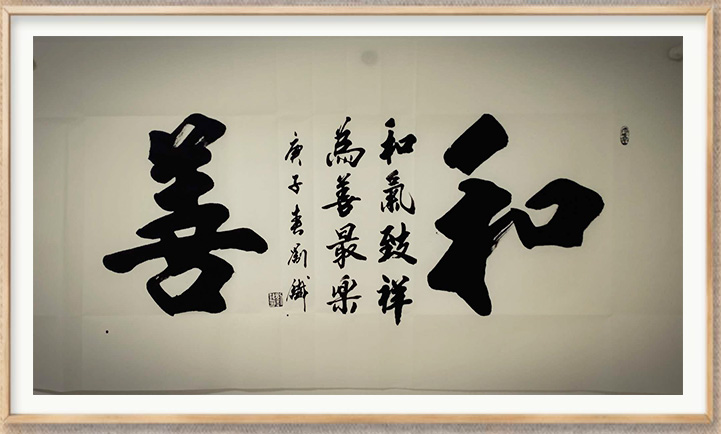 和
和氣致祥
為善最樂
庚子春劉鐵
善